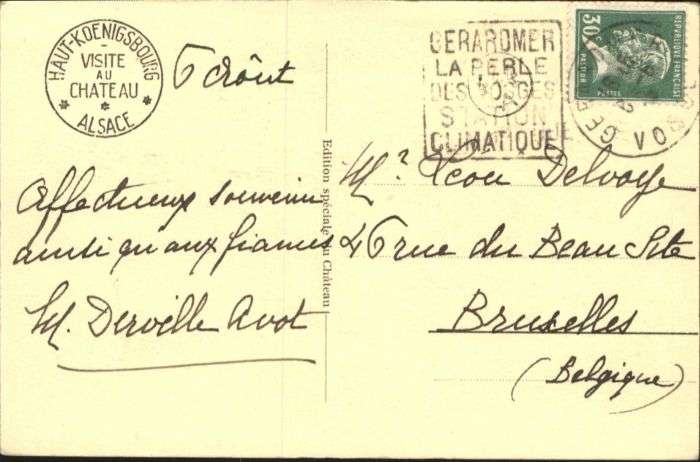 HAUT-KOENIGSBOURG
VISITE
AU
CHATEAU
ALSACE
6 Août
GERARDMER
LA PERLE
DES VOSGES
STATION
CLIMATIQUE
30c
REPUBLIQUE FRANÇAISE
PASTEUR
VOSGES
Affectueux souvenir
ainsi qu'aux fiancés
M. Derville Avot
Edition spéciale du Château
Mr Léon Delvoye
46 rue du Beau Site
Bruxelles
(Belgique)